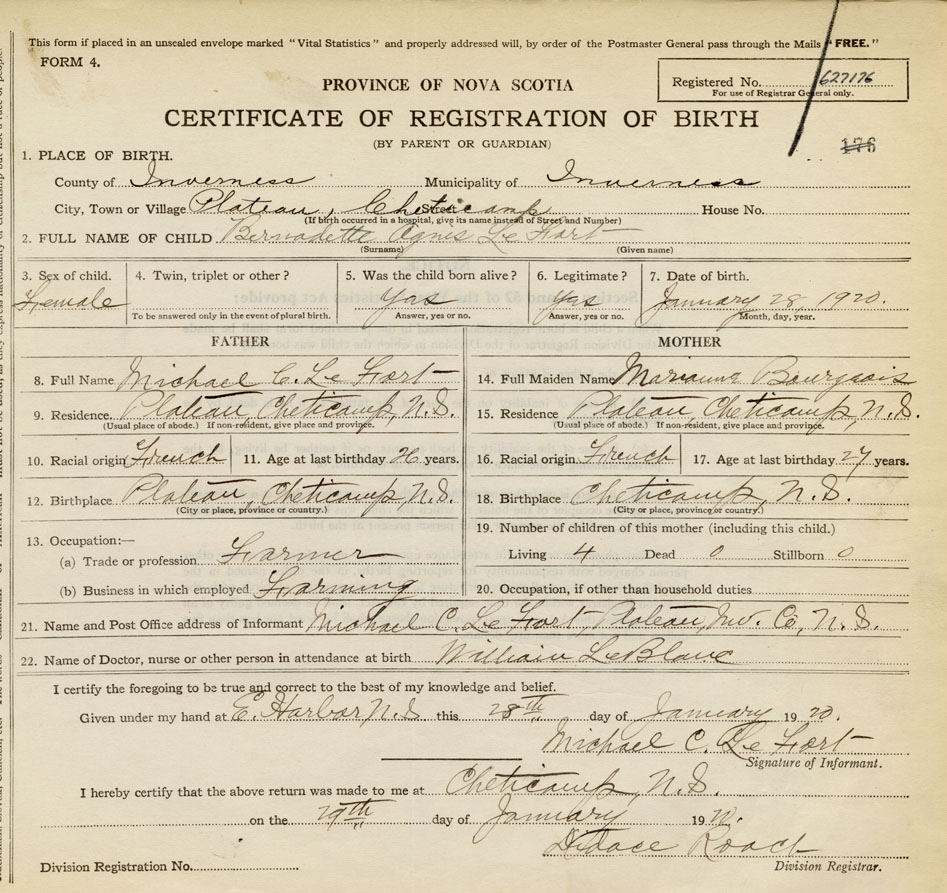 This form if placed in an unsealed envelope marked "Vital Statistics" and properly addressed will, by order of the Postmaster General pass through the Mails "FREE."
FORM 4.
PROVINCE OF NOVA SCOTIA
Registered No. 627176
For use of Registrar General only.
CERTIFICATE OF REGISTRATION OF BIRTH
(BY PARENT OR GUARDIAN)
176
1. PLACE OF BIRTH.
County of Inverness Municipality of Inverness
City, Town or Village Plateau, Cheticamp Street House No.
(If birth occurred in a hospital, give its name instead of Street and Number)
2. FULL NAME OF CHILD Bernadette Agnis Le Fort
(Surname) (Given name)
3. Sex of child. 4. Twin, triplet or other? 5. Was the child born alive? 6. Legitimate? 7. Date of birth.
Female Yas Yas January 28, 1920.
To be answered only in the event of plural birth. Answer, yes or no. Answer, yes or no. Month, day, year.
FATHER MOTHER
8. Full Name Michael C. Le Fort 14. Full Maiden Name Marianne Bourgeois
9. Residence. Plateau, Cheticamp, N.S. 15. Residence Plateau, Cheticamp, N.S.
(Usual place of abode.) If non-resident, give place and province. (Usual place of abode.) If non-resident, give place and province.
10. Racial origin French 11. Age at last birthday 26 years. 16. Racial origin French 17. Age at last birthday 27 years.
12. Birthplace Plateau, Cheticamp, N.S. 18. Birthplace Cheticamp, N.S.
(City or place, province or country.) (City or place, province or country.)
13. Occupation:— 19. Number of children of this mother (including this child.)
(a) Trade or profession Farmer Living 4 Dead 0 Stillborn 0
(b) Business in which employed Farming 20. Occupation, if other than household duties
21. Name and Post Office address of Informant Michael C. Le Fort, Plateau, Inv. Co, N.S.
22. Name of Doctor, nurse or other person in attendance at birth William LeBlanc
I certify the foregoing to be true and correct to the best of my knowledge and belief.
Given under my hand at E. Harbor N.S. this 28th day of January 1920.
Michael C. Le Fort
Signature of Informant.
I hereby certify that the above return was made to me at Cheticamp, N.S.
on the 29th day of January 1920.
Didace Roach
Division Registration No. Division Registrar.